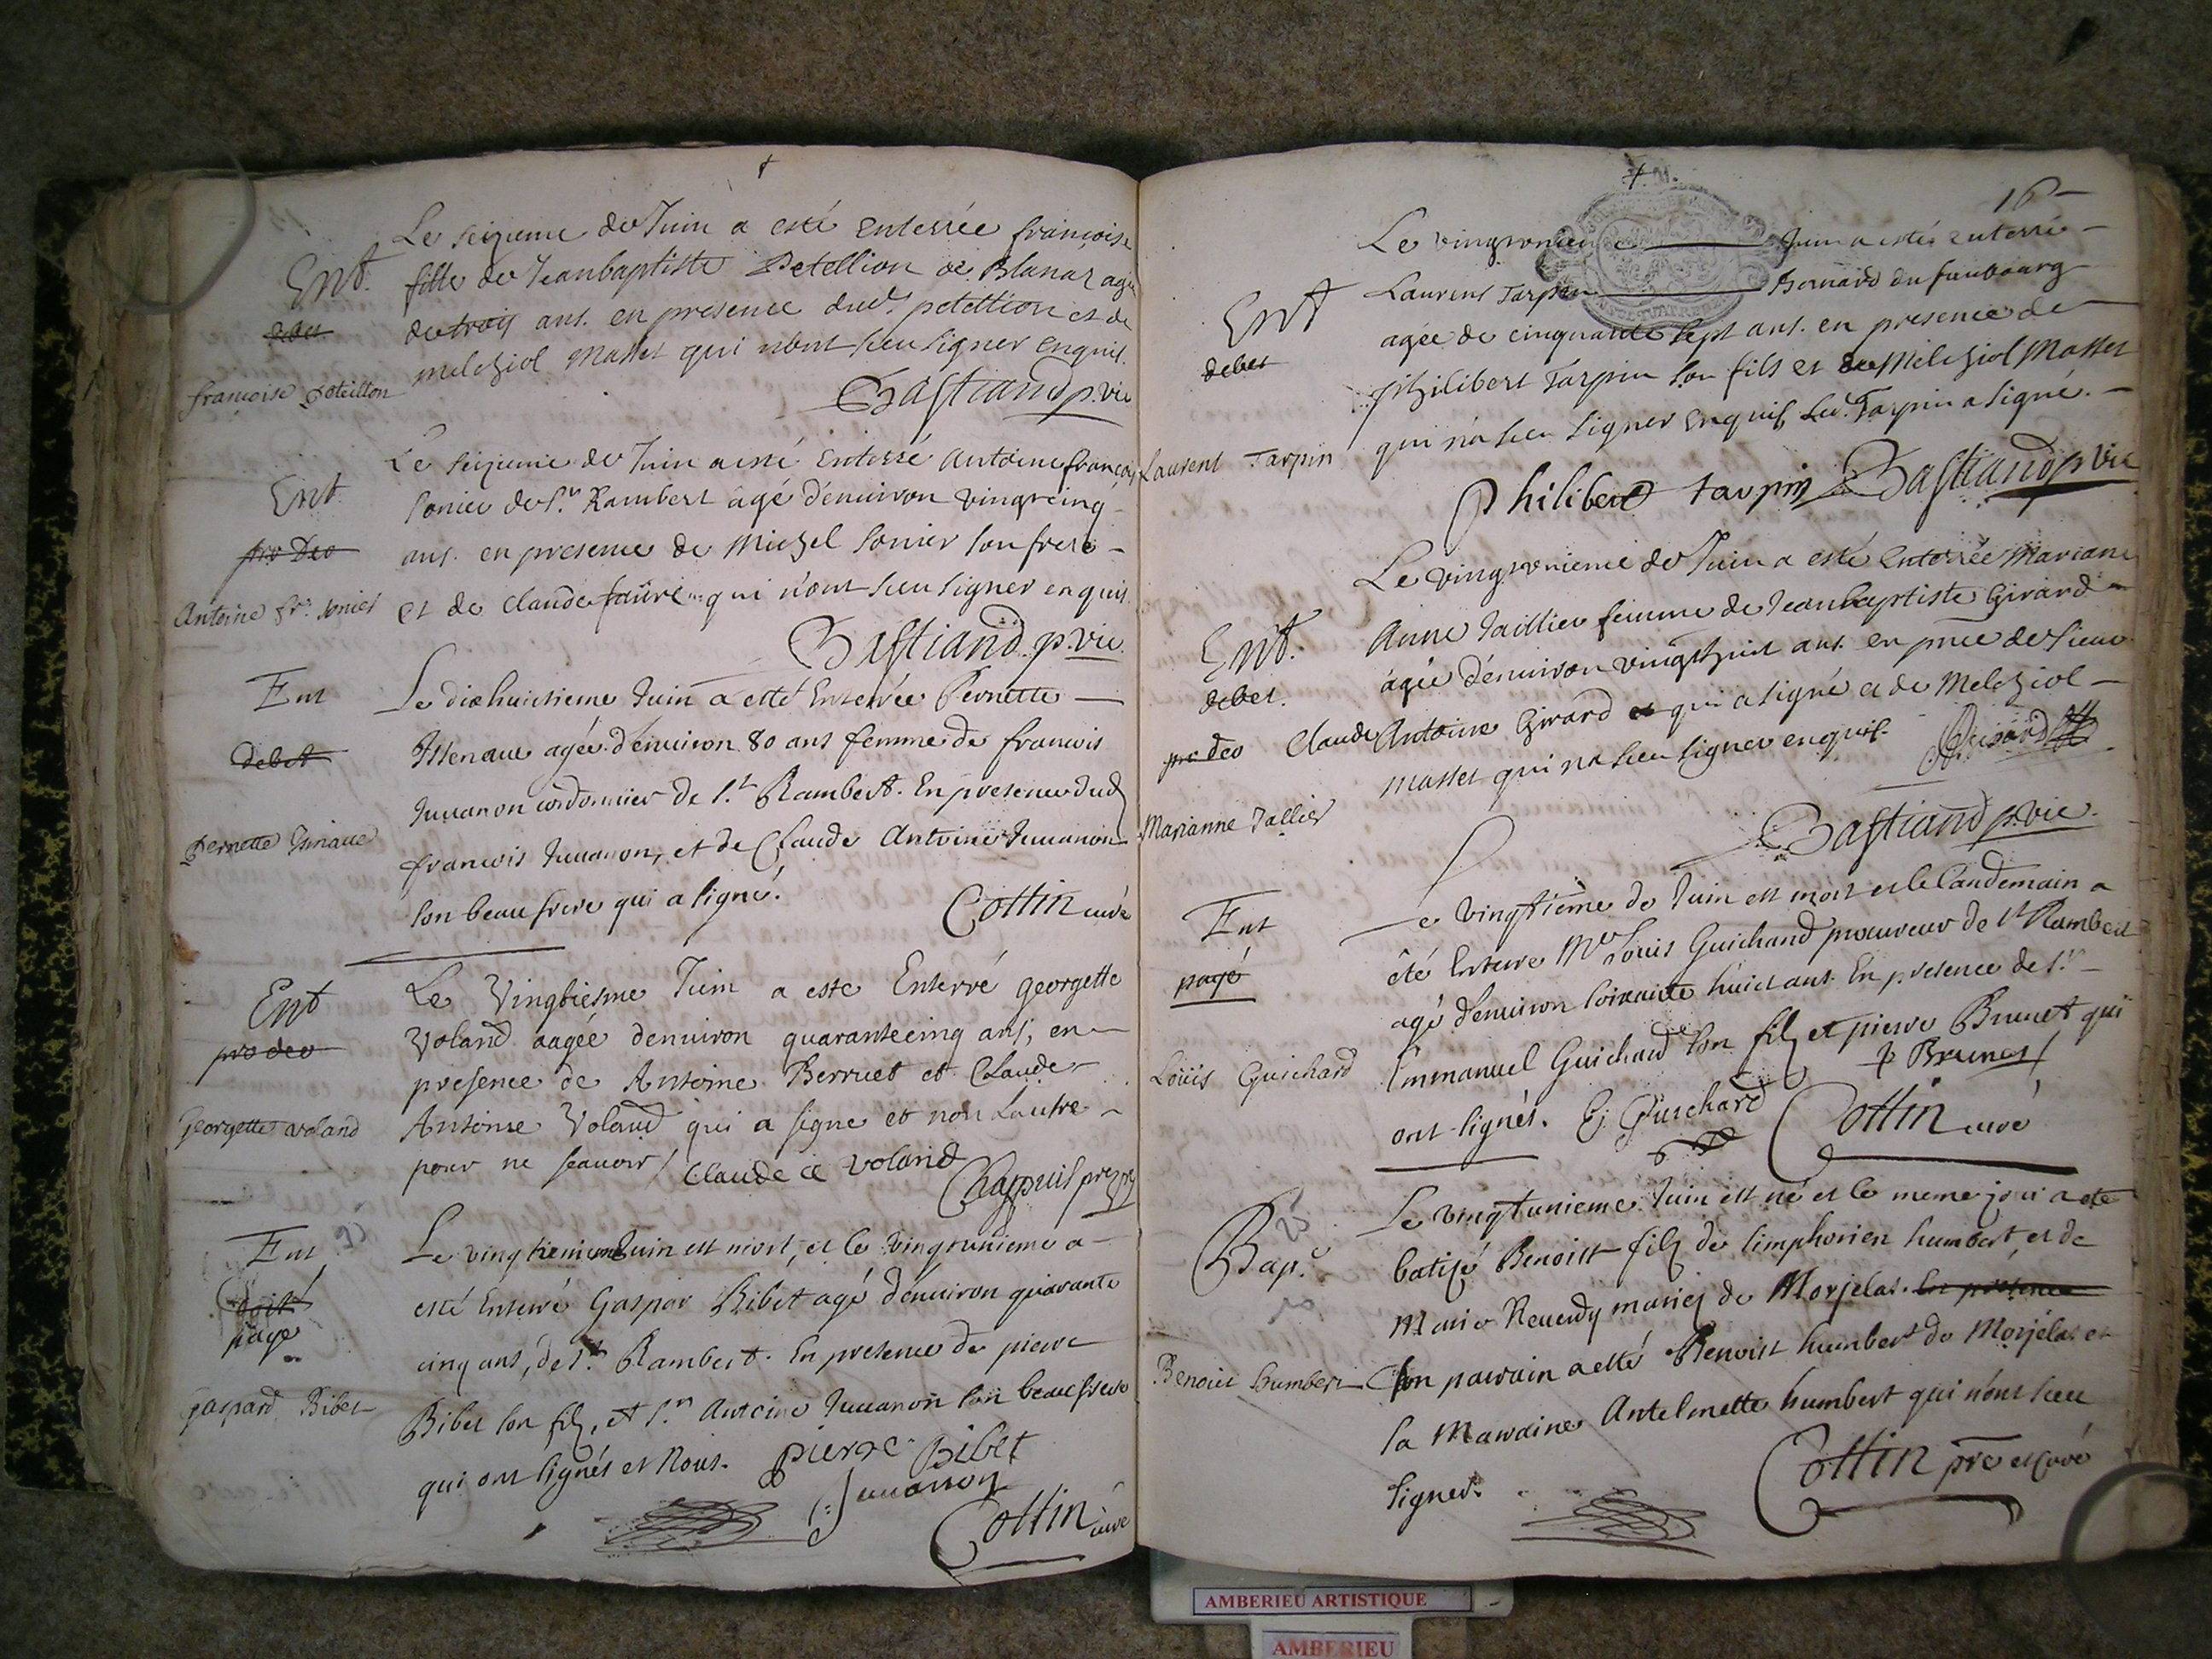 Le seizieme de Juin a esté enterrée françoise
Ent.
fille de Jeanbaptiste Petellion de Blanaz agée
debet
de trois ans. en presence dud. petellion et de
melchiol Masset qui n'ont sceu signer enquis.
françoise peteillon
Bastiand p. vic
Le seizieme de Juin a esté Enterré Antoine françois
Ent.
sonier de St. Rambert agé d'environ vingt cinq
pro Deo
ans. en presence de Michel sonier son frere
Antoine fr. sonier
et de claude faure qui n'ont sceu signer enquis
Bastiand p. vic.
Ent
Le dix huictieme Juin a esté Enterrée Pernette
debet
agée d'environ 80 ans femme de francois
Juuanon cordonnier de St. Rambert. En presence dud
Pernette
francois Juuanon, et de Claude Antoine Juuanon
son beau frere qui a signé.
Cottin curé
Ent
Le Vingtiesme Juin a este Enterré georgette
pro deo
Voland aagée denuiron quarantecinq ans, en
presence de Antoine Berruet et Claude
Georgette voland
Antoine Voland qui a signe et non Lautre
pour ne scauoir / Claude a voland
Chappuis
Ent
Le vingtieme Juin est mort, et le vingtunieme a
doit
payé
esté Enterré Gaspar Bibet agé d'enuiron quarante
cinq ans, de St. Rambert. En presence de pierre
gaspard Bibet
Bibet son fils, et Sr. Antoine Juuanon son beau frere
qui ont signés et Nous. pierre Bibet
Juuanon
Cottin curé
16
Le vingt unieme Juin a esté enterré
Ent
Laurent Tarpin Bernard du faubourg
debet
agée de cinquante sept ans. en presence de
philibert Tarpin son fils et de Melchiol Masset
Laurent Tarpin
qui n'a sceu signer enquis Led. Tarpin a signé.
Philibert tarpin Bastiand p. vic
Le vingt unieme de Juin a esté Enterrée Mariane
Ent.
Anne Taillier femme de Jeanbaptiste Girard
debet.
agée d'enuiron vingt huit ans. en pnce de sieur
pro deo
Claude Antoine Girard et qui a signé et de Melchiol
masset qui n'a sceu signer enquis. Girard
Marianne Tallier
Bastiand p. vic.
Ent
Le vingtième de Juin est mort et le landemain a
payé
été Enterré Me Louis Guichard procureur de St Rambert
agé d'enuiron soixante huict ans. En presence de Sr.
Louis Guichard
Emmanuel Guichard son fils et pierre Brunet qui
P Brunet
ont signés. E. Guichard Cottin curé
Bap.
Le vingtunieme Juin est né et le meme jour a eté
batisé Benoist fils de simphorien humbert, et de
Marie Reuerdy mariez de Morjelas. En presence
Benoist humbert
son parrain a esté Benoist humbert de Morjelas et
sa Marraine Antelmette humbert qui n'ont sceu
signer.
Cottin pre et curé
AMBERIEU ARTISTIQUE
AMBERIEU